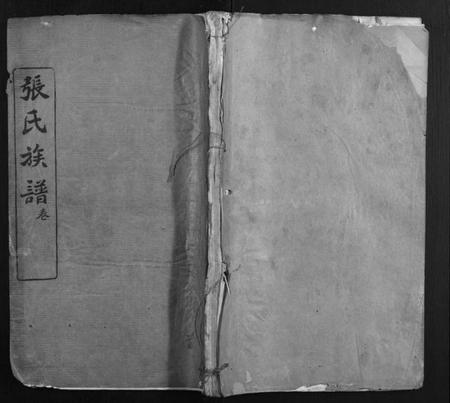 張氏族譜卷